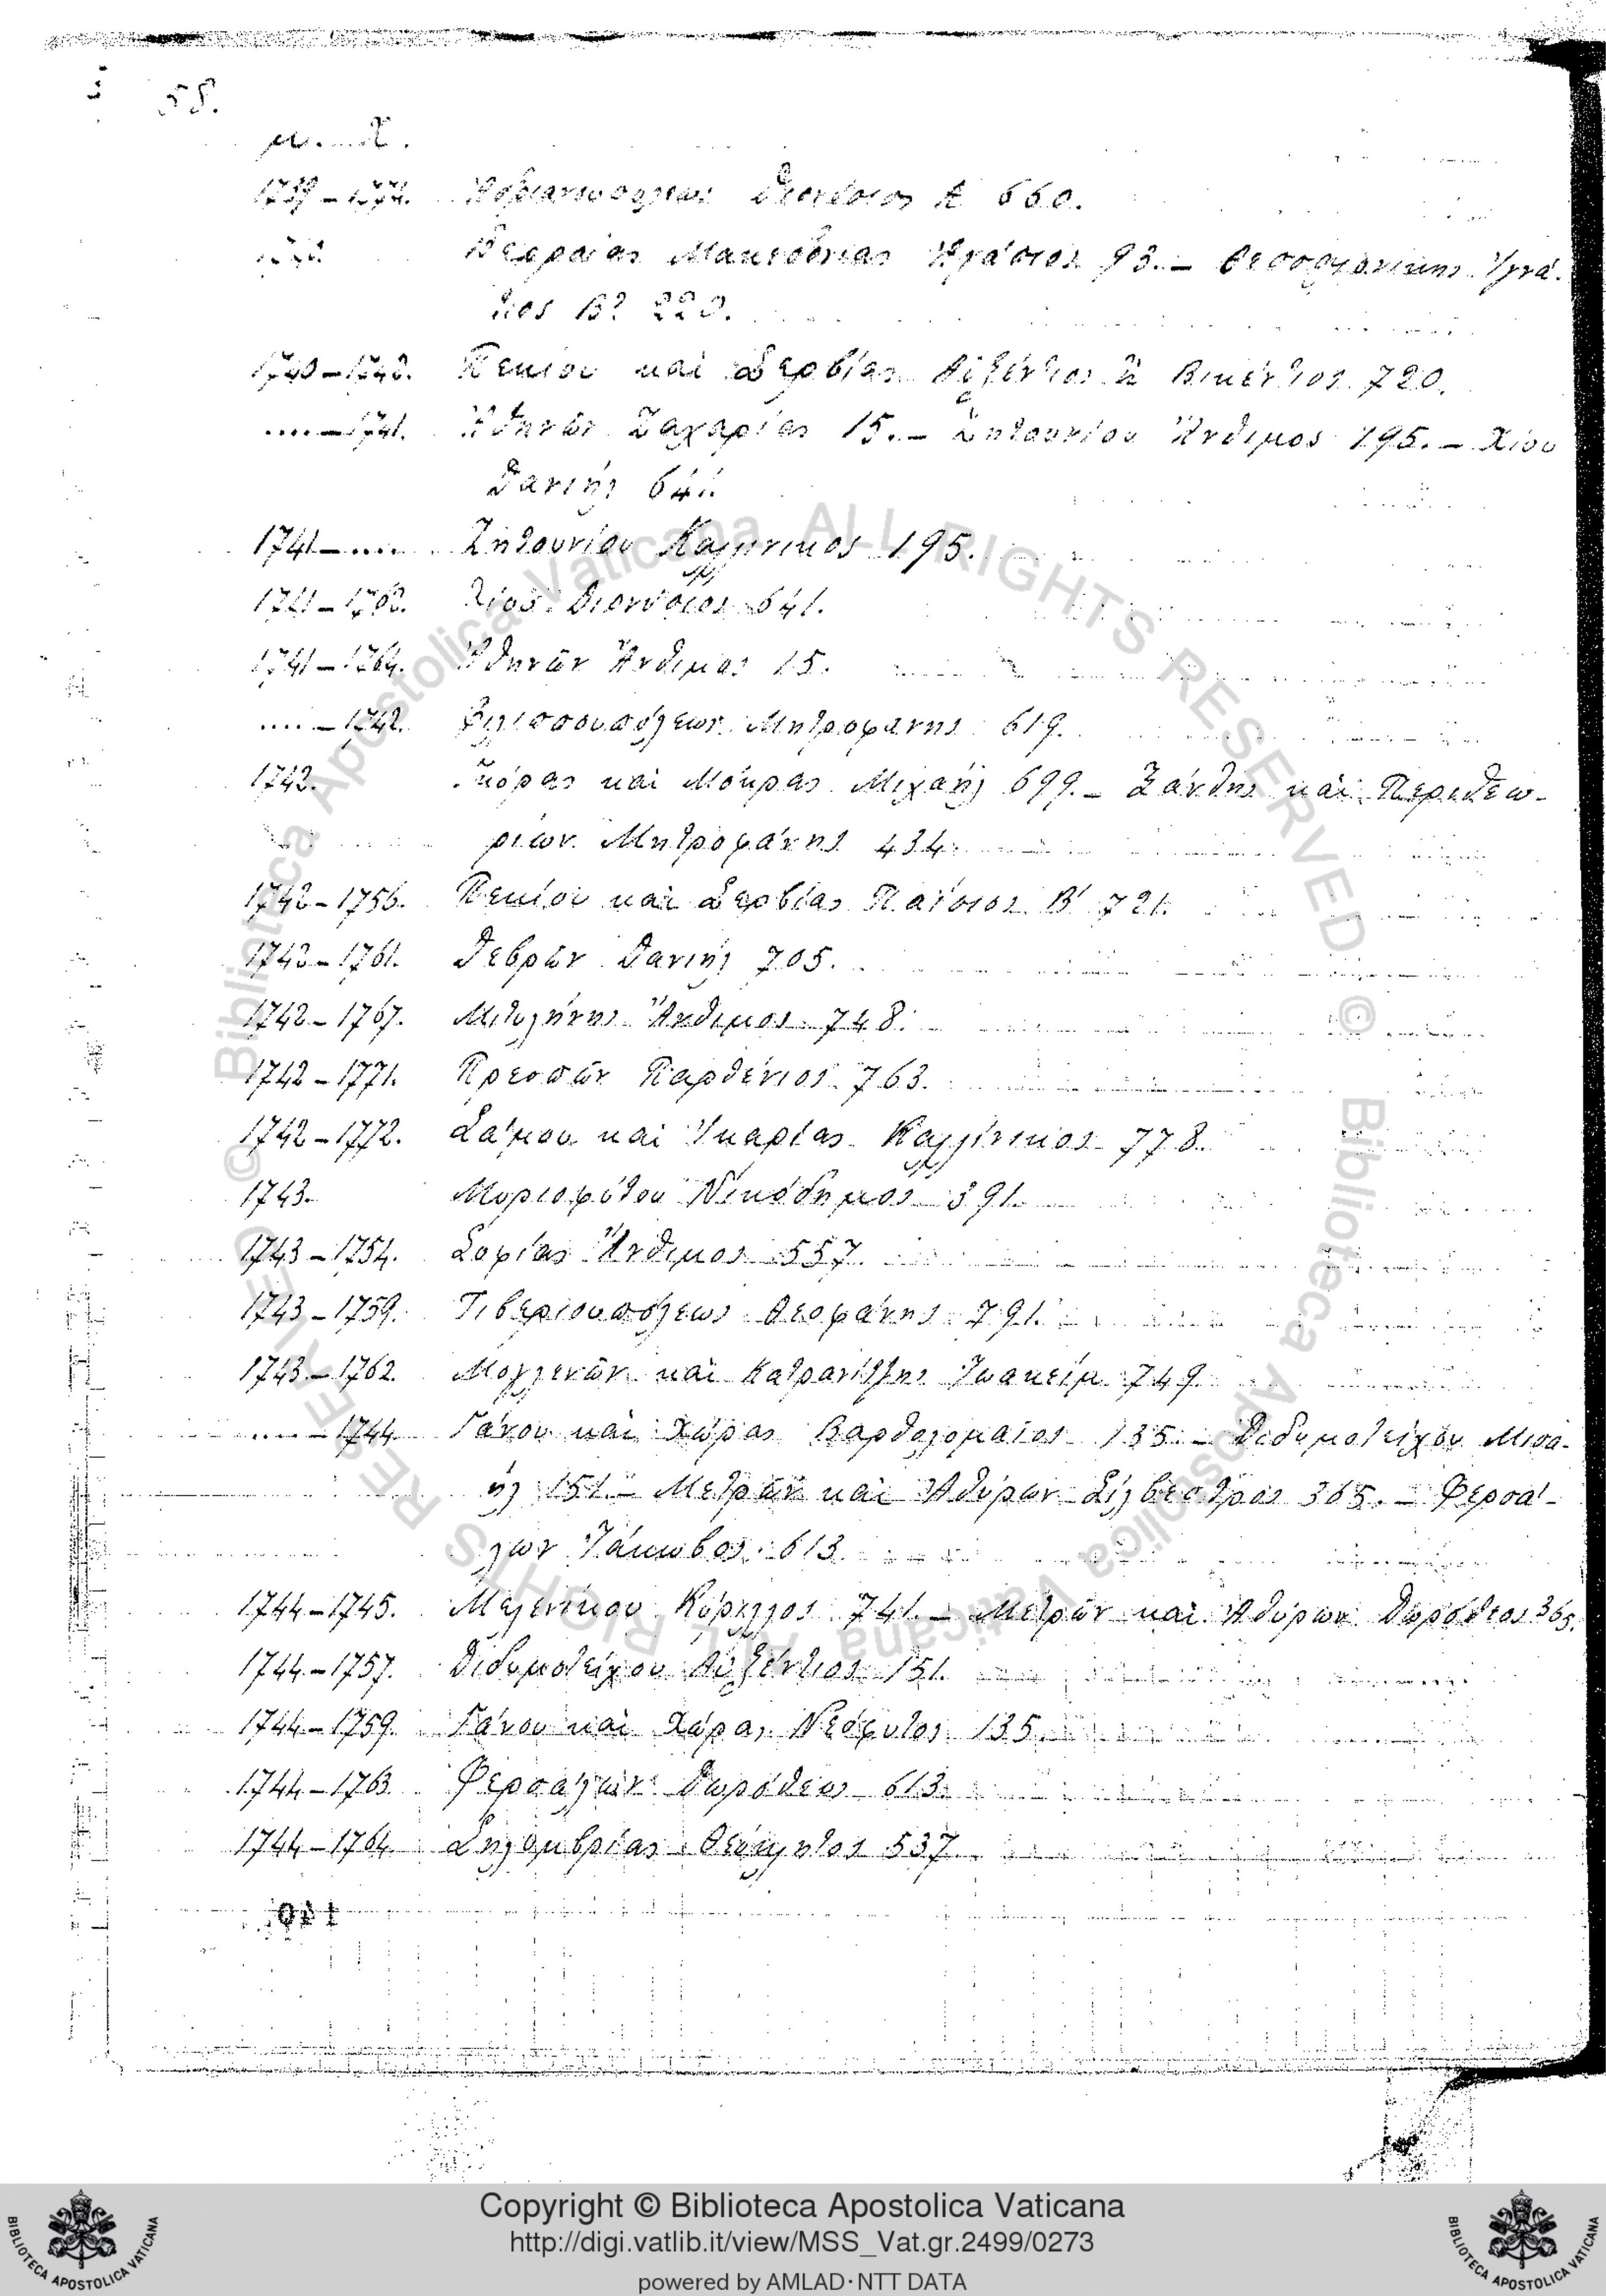 58.
μ. Χ.
1739-1774. Ἀδριανουπόλεως Διονύσιος Α 660.
Βερροίας Μακεδονίας Ἰγνάτιος 93. – Θεσσαλονίκης Ἰγνά-
τιος Β? 220.
Πεκίου καὶ Σερβίας Αὐξέντιος ἢ Βικέντιος 720.
.... – 1741. Ἀθηνῶν Ζαχαρίας 15. – Ζητουνίου Ἄνθιμος 195. – Χίου
Δανιὴλ 641.
1741 – .... Ζητουνίου Καλλίνικος 195.
Χίου Διονύσιος 641.
1741 – 1764. Ἀθηνῶν Ἄνθιμος 15.
.... – 1742. Φιλιππουπόλεως Μητροφάνης 619.
1742. κόρας καὶ Μούρας Μιχαὴλ 699. – Ξάνθης καὶ Περιθεω-
ρίων Μητροφάνης 434.
1742 – 1756. Πεκίου καὶ Σερβίας Παΐσιος Β' 721.
1742 – 1761. Δεβρῶν Δανιὴλ 705.
1742 – 1767. Μιτυλήνης Ἄνθιμος 748.
1742 – 1771. Πρεσπῶν Παρθένιος 763.
1742 – 1772. Σάμου καὶ Ἰκαρίας Καλλίνικος 778.
1743. Μυριοφύτου Νικόδημος 391.
1743 – 1754. Σοφίας Ἄνθιμος 557.
1743 – 1759. Τιβεριουπόλεως Θεοφάνης 791.
1743 – 1762. Μογλενῶν καὶ Κατρανίτζης Ἰωακεὶμ 749.
.... – 1744. Γάνου καὶ Χώρας Βαρθολομαῖος 135. – Διδυμοτείχου Μισα-
ὴλ 151. – Μετρῶν καὶ Ἀθύρων Σίλβεστρος 365. – Φερσά-
λων Ἰάκωβος 613.
1744 – 1745. Μελενίκου Κύριλλος 741. – Μετρῶν καὶ Ἀθύρων Δωρόθεος 365.
1744 – 1757. Διδυμοτείχου Αὐξέντιος 151.
1744 – 1759. Γάνου καὶ Χώρας Νεόφυτος 135.
1744 – 1763. Φερσάλων Δωρόθεος 613.
1744 – 1764. Σηλυμβρίας Θεόκλητος 537.
© Biblioteca Apostolica Vaticana ALL RIGHTS RESERVED
© Biblioteca Apostolica Vaticana ALL RIGHTS RESERVED
Copyright © Biblioteca Apostolica Vaticana
http://digi.vatlib.it/view/MSS_Vat.gr.2499/0273
powered by AMLAD·NTT DATA
BIBLIOTECA APOSTOLICA VATICANA
BIBLIOTECA APOSTOLICA VATICANA